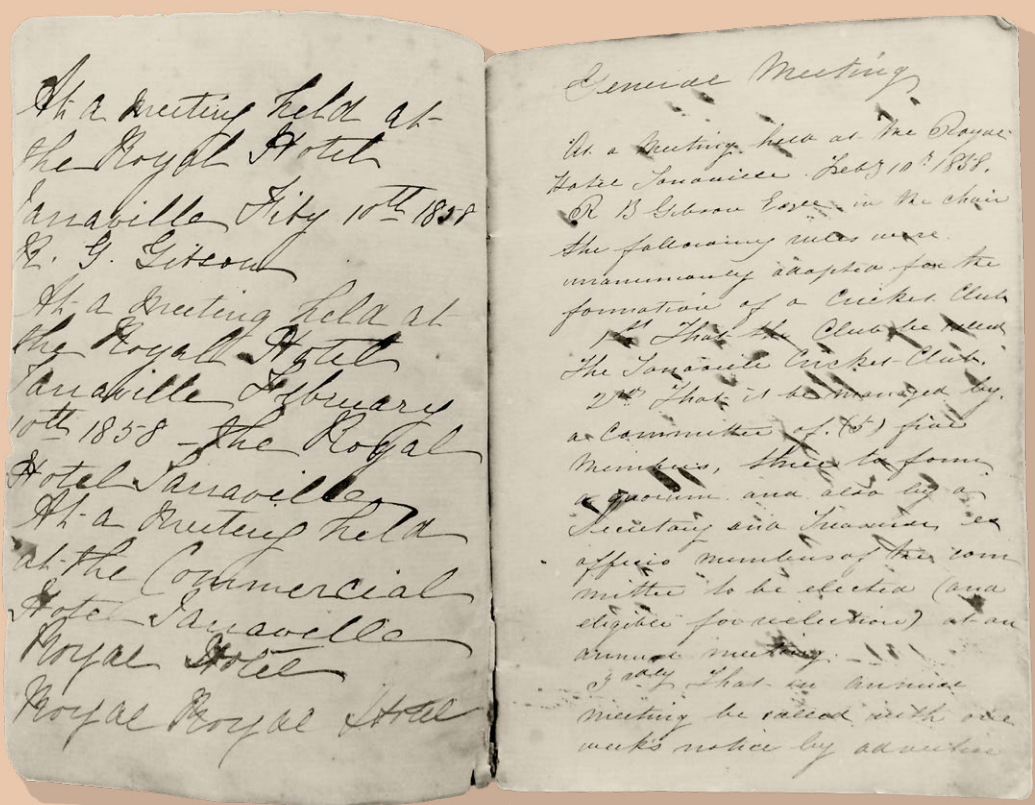 At a meeting held at
the Royal Hotel
Tanaville Feby 10th 1858
R. G. Gibson
At a meeting held at
the Royall Hotel
Tanaville February
10th 1858 - the Royal
Hotel Tanaville
At a meeting held
at the Commercial
Hotel Tanaville
Royal Hotel
Royal Royal Hotel
General Meeting
At a Meeting held at the Royal
Hotel Tanaville. Feby 10th 1858.
R B Gibson Esqre in the chair
the following rules were
unanimously adopted for the
formation of a Cricket Club
1st That the Club be called
The Tanaville Cricket Club.
2nd That it be managed by
a Committee of (5) five
Members, three to form
a quorum and also by a
Secretary and Treasurer ex
officio members of the com
mittee to be elected (and
eligible for reelection) at an
annual meeting.
3rdly That an annual
meeting be called with one
weeks notice by advertise